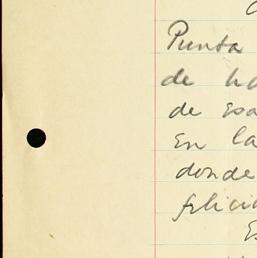 Punta
de ha
de esa
En la
donde
felicid
Es